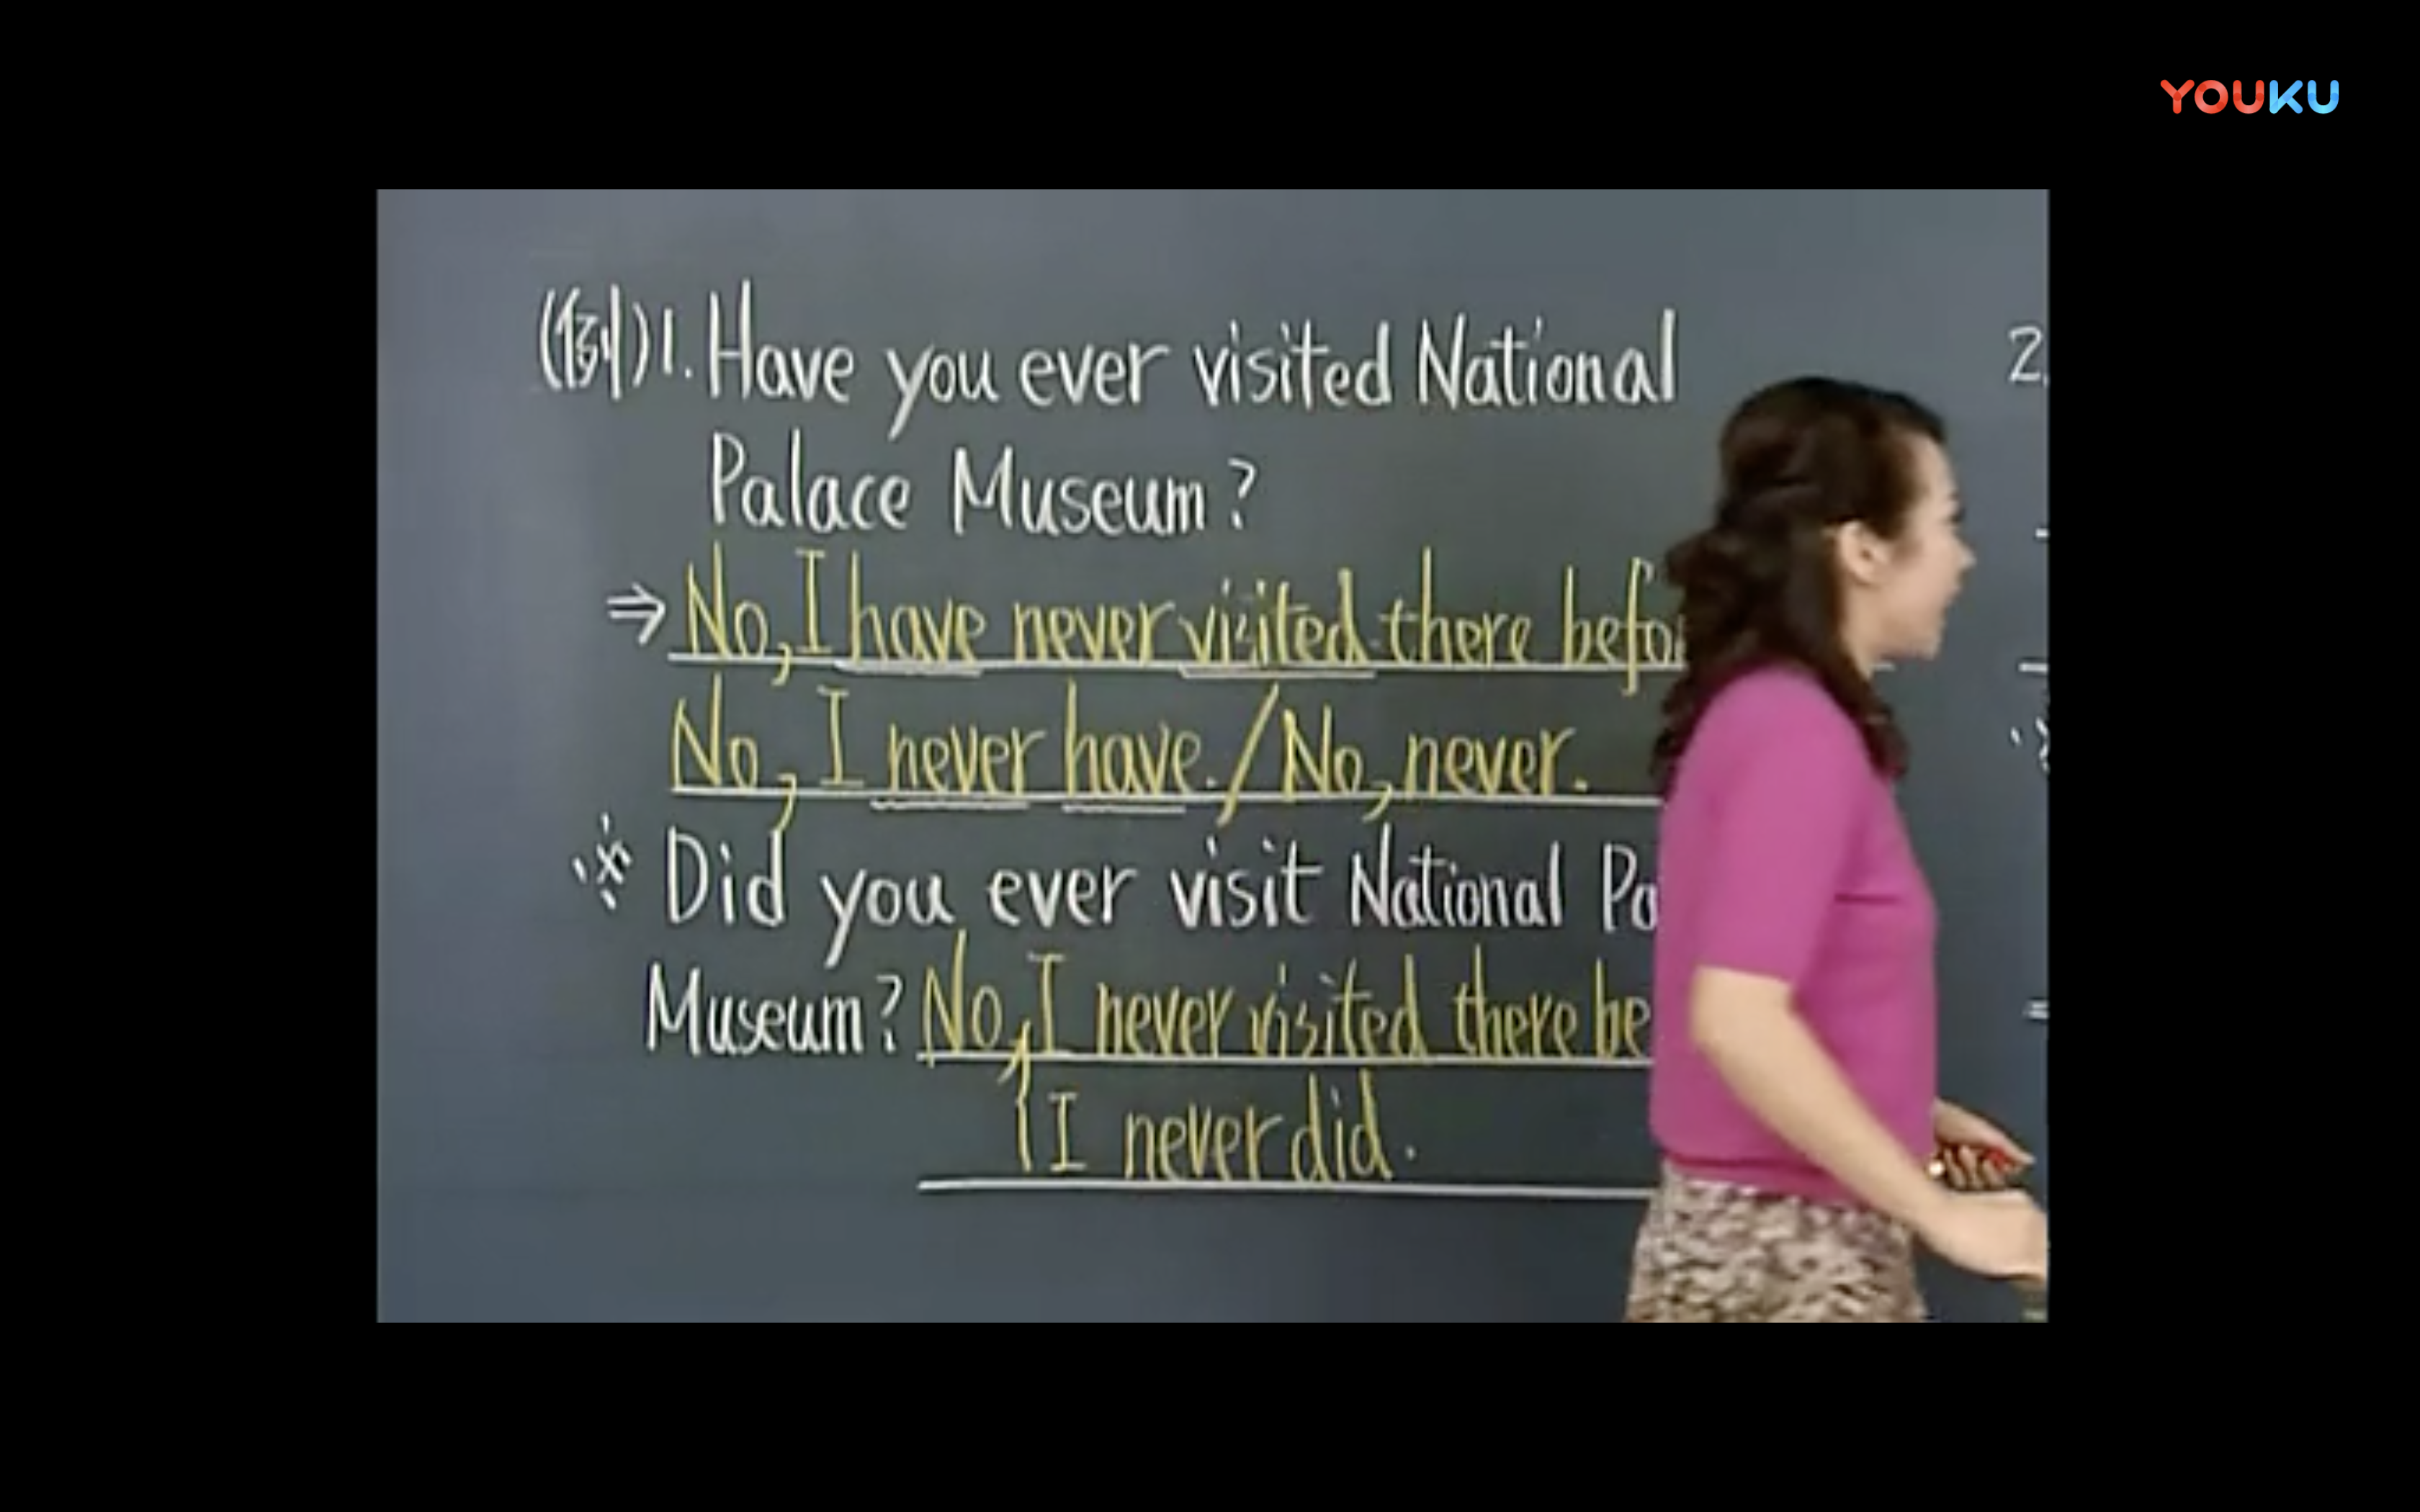 YOUKU
(例)1. Have you ever visited National
2.
Palace Museum?
⇒ No, I have never visited there
No, I never have. / No, never.
※ Did you ever visit National
Museum? No, I never visited there
{ I never did.